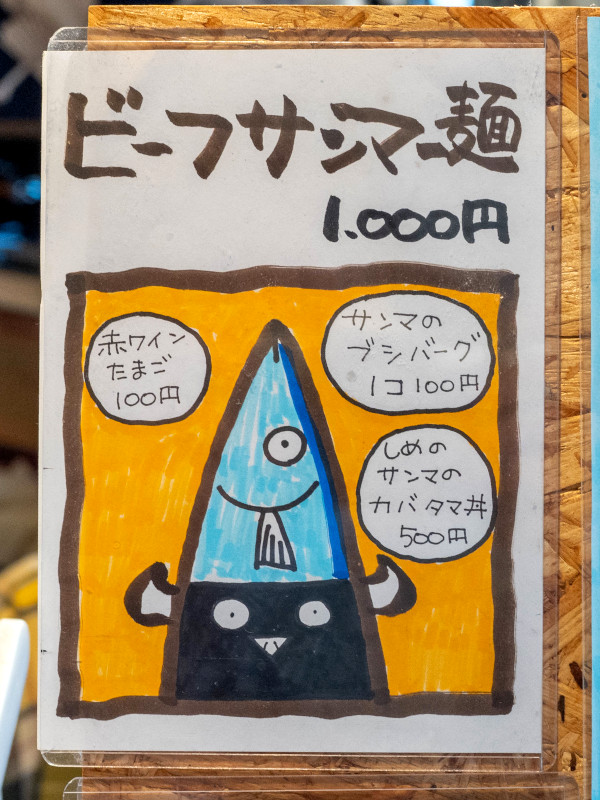 ビーフサンマー麺
1.000円
赤ワイン
たまご
100円
サンマの
ブシバーグ
1コ100円
しめの
サンマの
カバタマ丼
500円